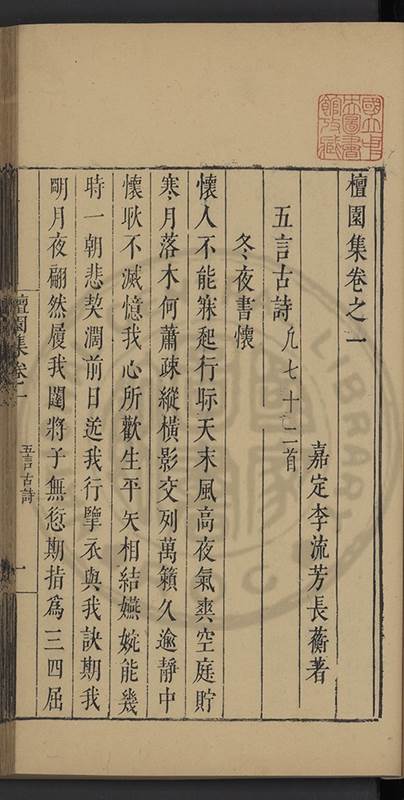 檀園集卷之一
嘉定李流芳長蘅著
五言古詩 凡七十二首
冬夜書懷
懷人不能寐起行眎天末風高夜氣爽空庭貯
寒月落木何蕭疎縱橫影交列萬籟久逾靜中
懷耿不滅憶我心所歡生平矢相結嬿婉能幾
時一朝悲契濶前日送我行擥衣與我訣期我
明月夜翩然履我闥將子無愆期指為三四屈
檀園集卷一
五言古詩
一
國立中
央圖書
館攷藏
LIBRARY